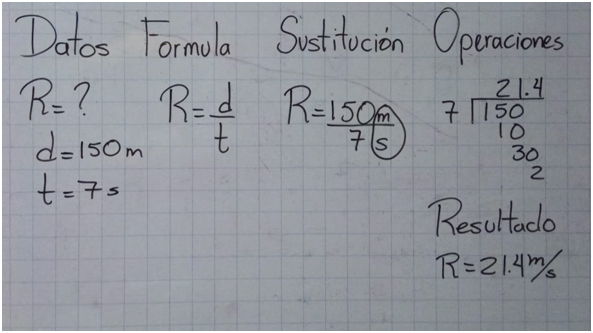 Datos Formula Sustitución Operaciones
R=? R=d/t R=150m/7s
d=150m
t=7s
21.4
7 150
10
30
2
Resultado
R=21.4m/s